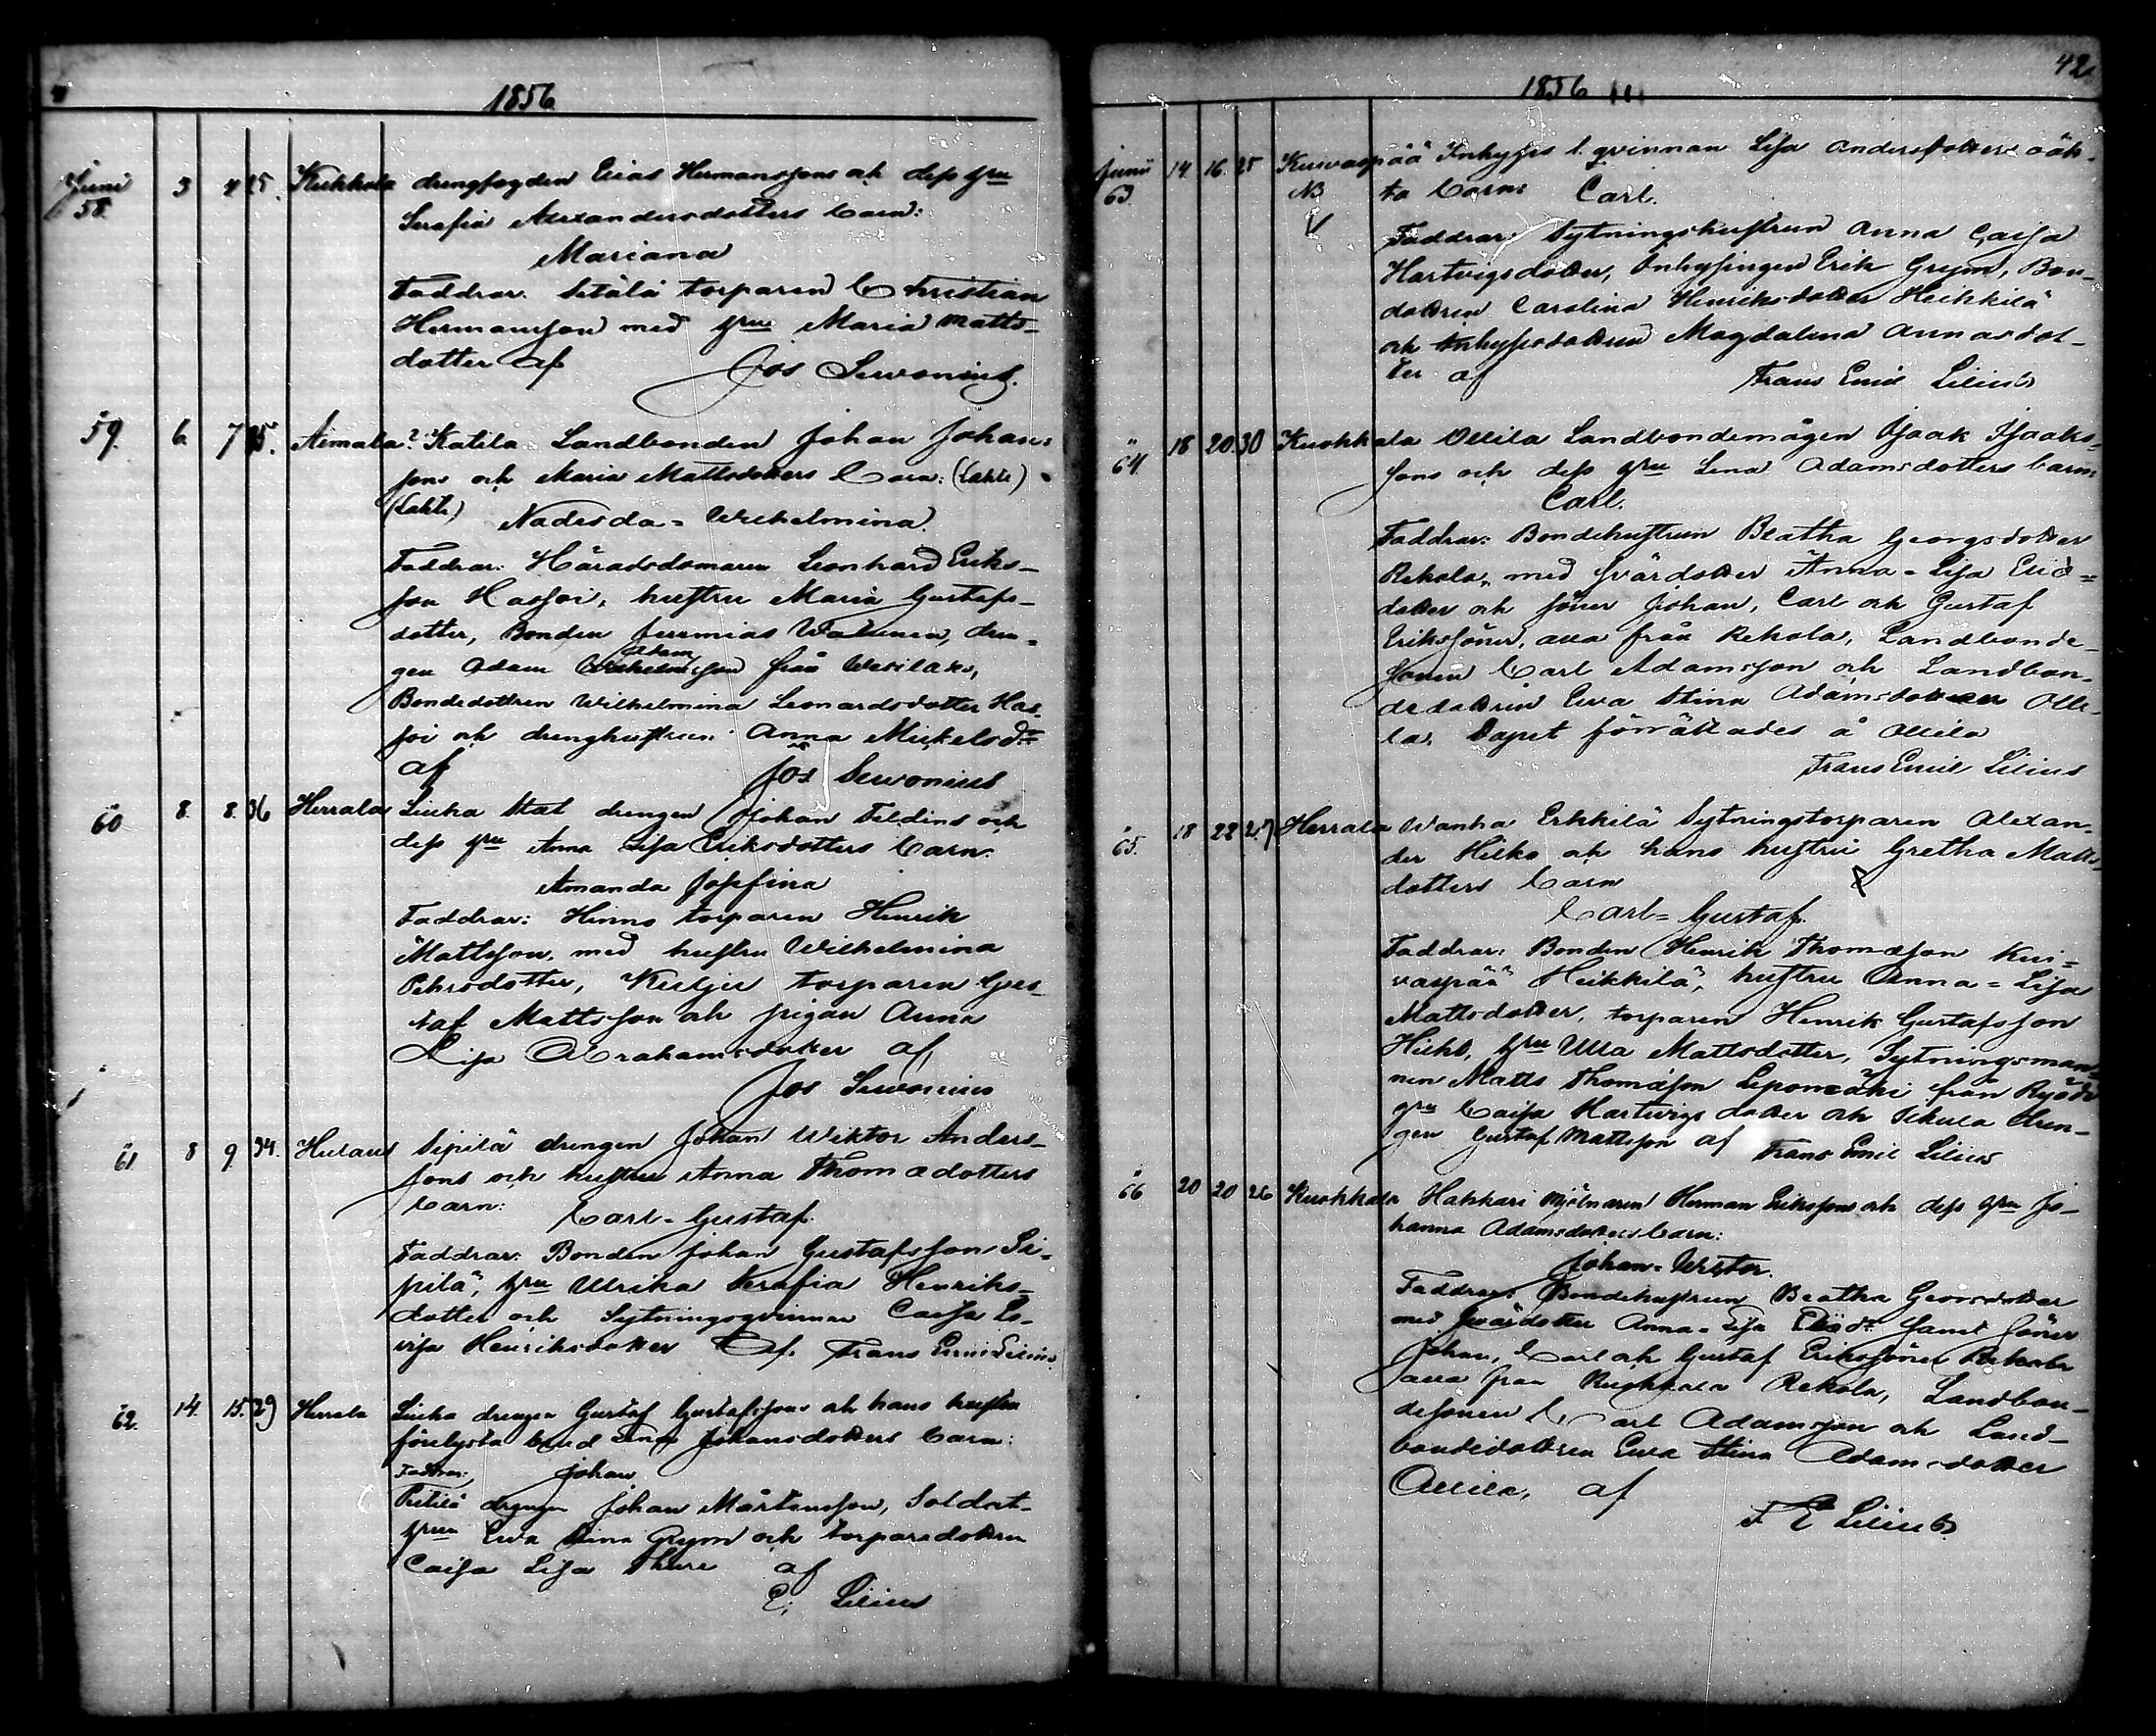 1856
Juni 3 4 25. Kukkola drengfogden Elias Hermanssons och dess hru
58. Serafia Alexandersdotters barn:
Mariana
Faddrar. Setälä torparen Christian
Hermansson med hru Maria Matts-
dotter af Jos Sevonius.
59. 6. 7 25. Aimala? Katila Landbonden Johan Johans-
sons och Maria Mattsdotters barn: (Lahti)
(Lahti) Nadesda = Wilhelmina.
Faddrar: Häradsdomaren Leonhard Eriks-
son Hassoi, hustru Maria Gustafs-
dotter, Bonden Jeremias, dren-
gen Adam Adamsson från Wesilaks,
Bondedottren Wilhelmina Leonardsdotter Has-
soi och drenghustrun Anna Mickelsdr
af Jos Sevonius
60 8. 8. 36 Herrala Liuha Stat drengen Johan Feldins och
dess hru Anna Lisa Eriksdotters barn.
Amanda Josefina
Faddrar: Hinno torparen Henrik
Mattsson, med hustru Wilhelmina
Pehrsdotter, torparen Gus-
taf Mattsson och pigan Anna
Lisa Abrahamsdotter af
Jos Sevonius
61 8 9 34. Hulaus Sipilä drengen Johan Wiktor Anders-
sons och hustru Anna Thomædotters
barn: Carl = Gustaf.
Faddrar: Bonden Johan Gustafsson Si-
pilä, hru Ulrika Serafia Henriks-
dotter och Sytningsqvinnan Caisa Lo-
visa Henriksdotter af. Frans Emil Lilius
62. 14. 15. 29 Herrala Liuha drengen Gustaf Gustafssons och hans hustru
Johansdotters barn:
Faddrar: Johan
drengen Johan Mårtensson, Soldat-
hrun Eva Stina Grym och torparedottren
Caisa Lisa Thure af
E. Lilius
42.
1856
Junii 14. 16. 25 Kuivaspää Inhyses l. qvinnan Lisa Andersdotters oäk-
63. NB ta barn: Carl.
Faddrar: Sytningshustrun Anna Caisa
Hartvigsdotter, Inhysingen Erik Grym, Bon-
dottren Carolina Henriksdotter Heikkilä
och Inhysesdottren Magdalena Annasdot-
ter af Frans Emil Lilius
64. 18 20. 30 Kuokkala Ollila Landbondemågen Isaak Isaaks-
sons och dess hru Lena Adamsdotters barn:
Carl.
Faddrar: Bondehustrun Beatha Georgsdotter
Rekola, med svärdotter Anna = Lisa Elias-
dotter och söner Johan, Carl och Gustaf
Erikssöner, alla från Rekola, Landbonde-
sonen Carl Adamsson och Landbon-
dedottren Eva Stina Adamsdotter Olli-
la. Dopet förrättades å Ollila
Frans Emil Lilius
65. 18 22 27. Herrala Wanha Erkkilä Sytningstorparen Alexan-
der Hilke och hans hustru Gretha Matts-
dotters barn
Carl = Gustaf.
Faddrar: Bonden Henrik Thomasson Kui-
vaspää Heikkilä, hustru Anna = Lisa
Mattsdotter, torparen Henrik Gustafsson
Hilke, hru Ulla Mattsdotter, Sytningsman-
nen Matts Thomasson Lepomäki från
hru Caisa Hartvigsdotter och Pekula dren-
gen Gustaf Mattsson af Frans Emil Lilius
66 20 20 26 Kuokkala Hakkari Mjölnaren Herman Erikssons och dess hru Jo-
hanna Adamsdotters barn:
Johan = Wiktor.
Faddrar: Bondehustrun Beatha Georsdotter
med svärdotter Anna = Lisa Eliædr. samt söner
Johan, Carl och Gustaf Erikssöner Rekola
alla från Kuokkala Rekola, Landbon-
desonen Carl Adamsson och Land-
bondedottren Eva Stina Adamsdotter
Ollila, af
F E Lilius